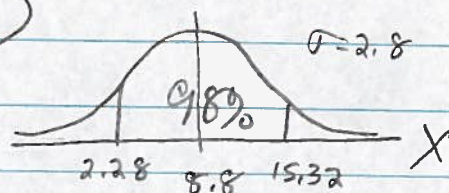 σ=2.8
98%
2.28 8.8 15.32 X